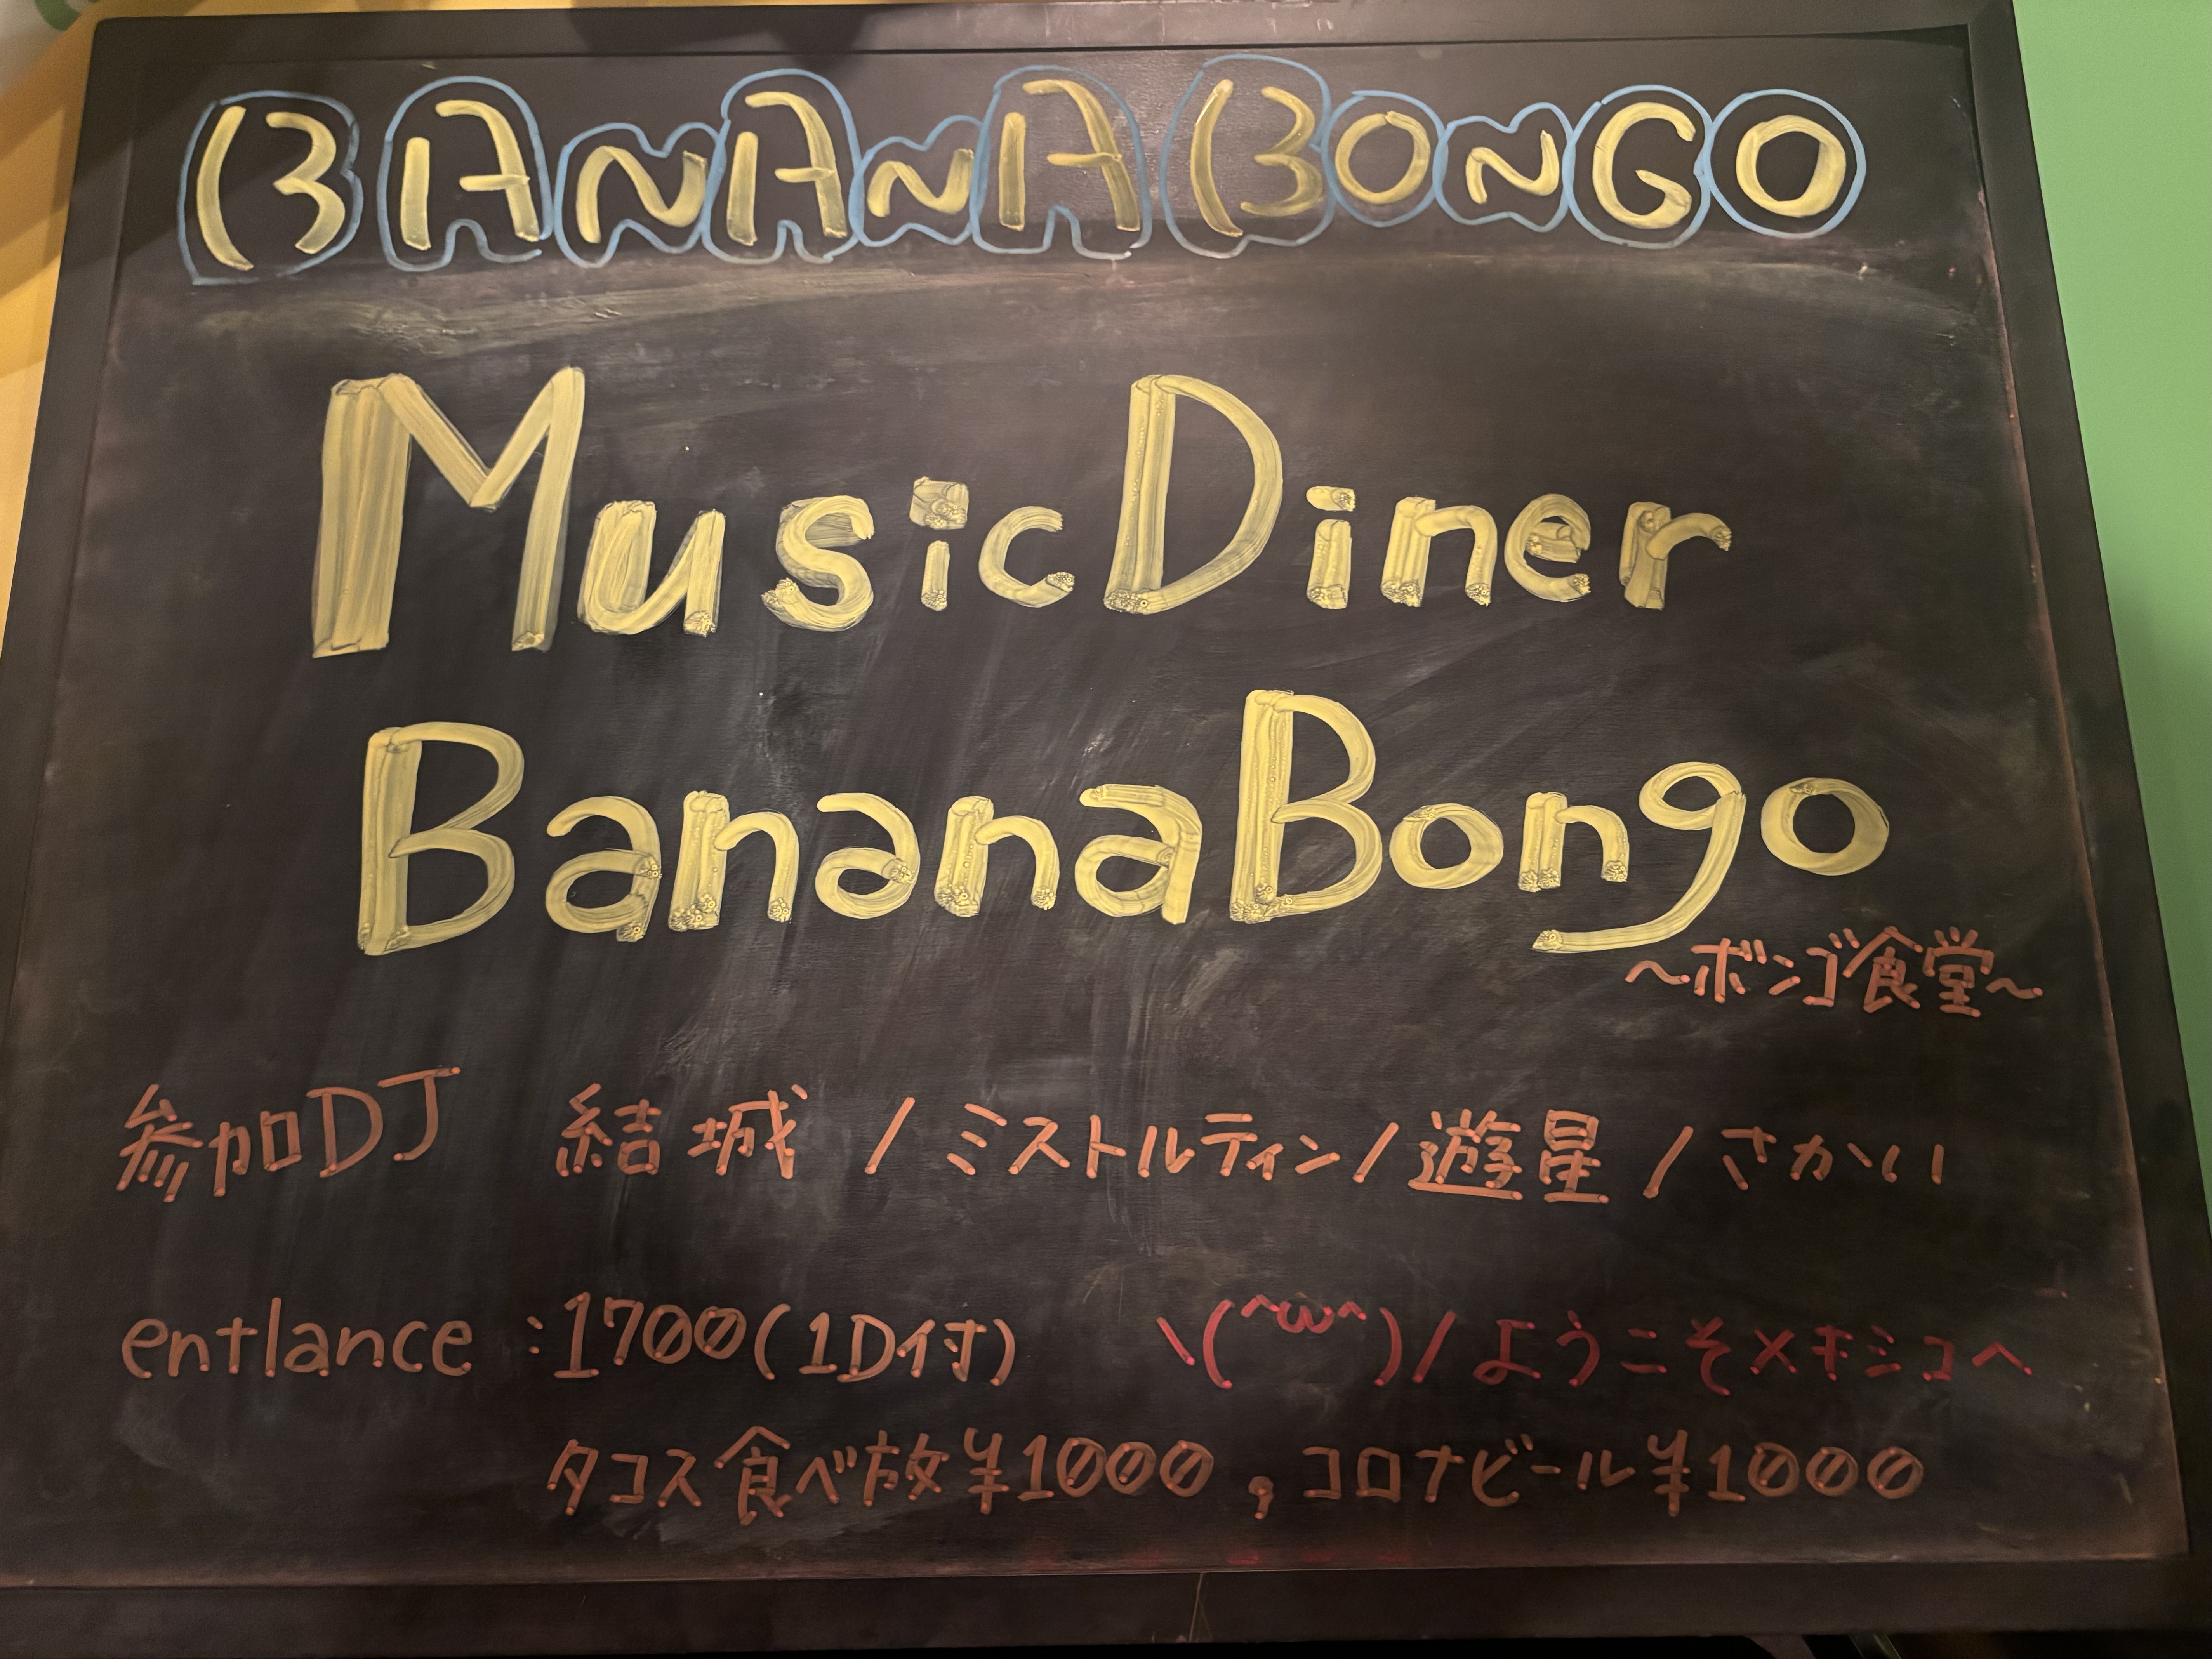 BANANA BONGO
Music Diner
BananaBongo
~ボンゴ食堂~
参加DJ 結城 / ミストルティン / 遊星 / さかい
entlance :1700(1D付) \(^ω^)/ ようこそメキシコへ
タコス食べ放¥1000 , コロナビール¥1000